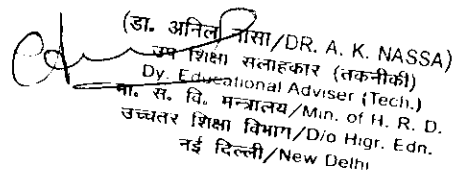 (डा. अनिल नासा/DR. A. K. NASSA)
उप शिक्षा सलाहकार (तकनीकी)
Dy. Educational Adviser (Tech.)
मा. स. वि. मन्त्रालय/Min. of H. R. D.
उच्चतर शिक्षा विभाग/D/o Higr. Edn.
नई दिल्ली/New Delhi